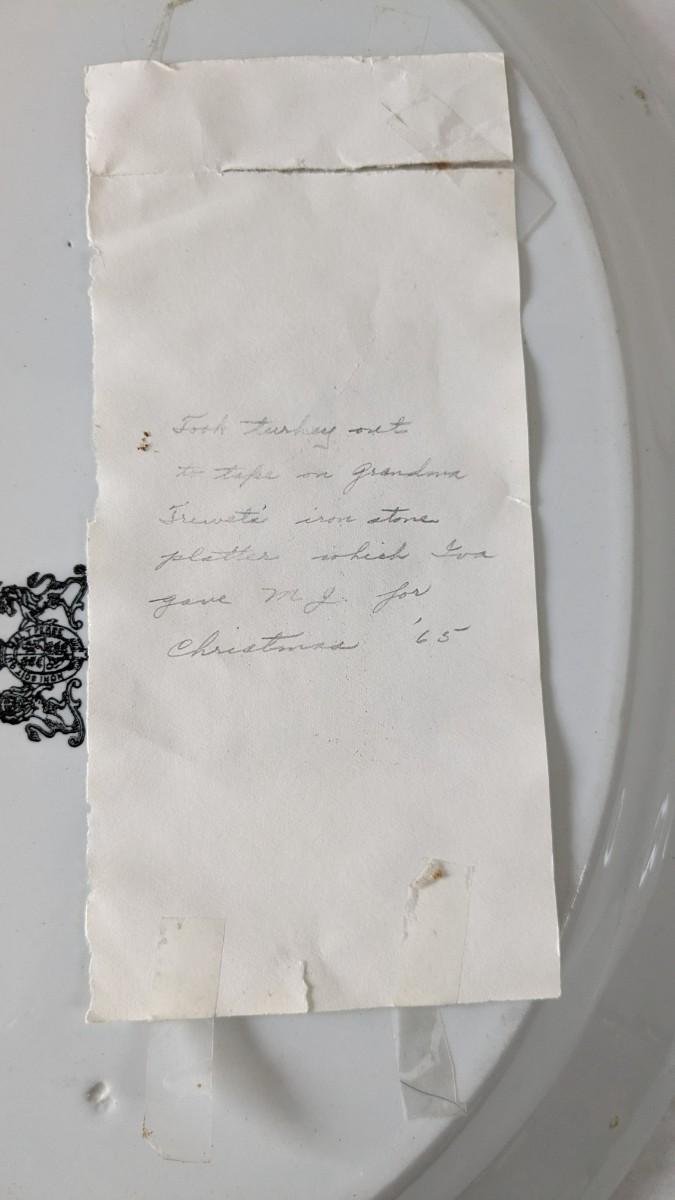 Took turkey out
to tape on Grandma
iron stone
platter which Iva
gave M J. for
Christmas '65